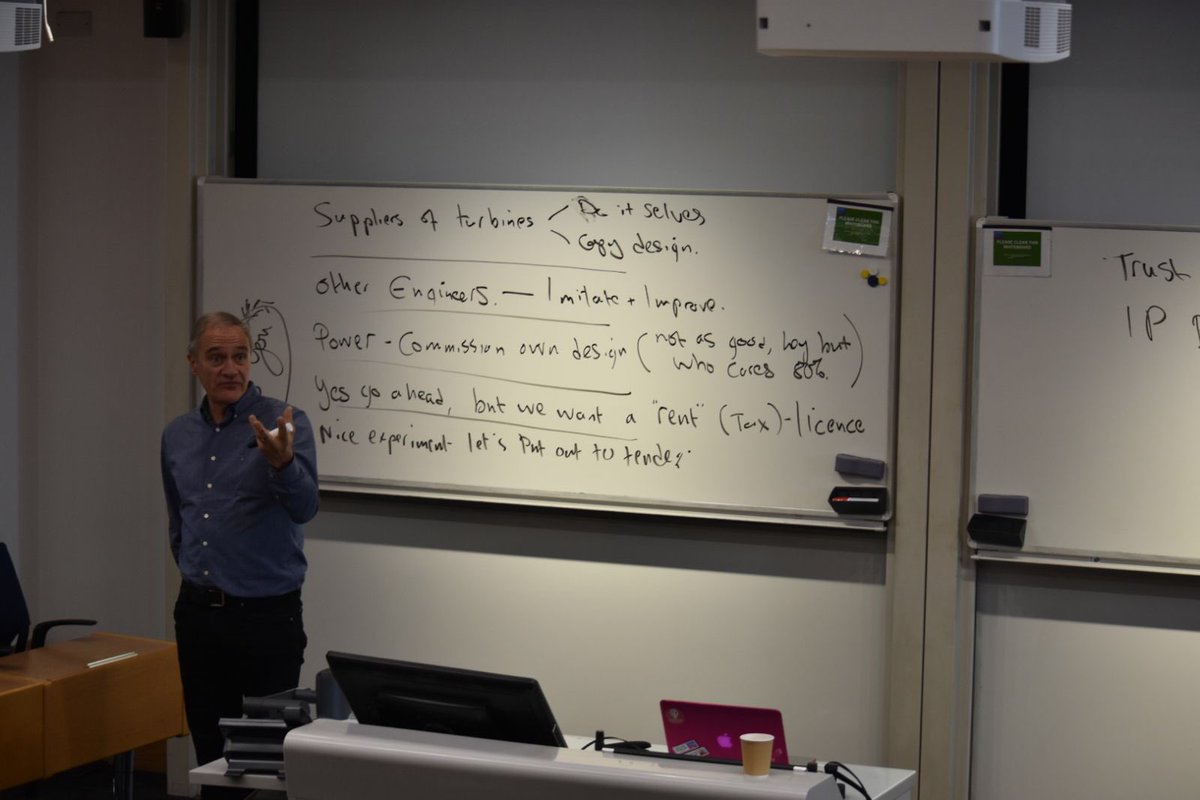 Suppliers of turbines
Do it selves
Copy design.
other Engineers. — Imitate + Improve.
Power - Commission own design (not as good, hey but
who cares 80%.)
Yes go ahead, but we want a "rent" (Tax) - licence
Nice experiment - let's Put out to tender.
PLEASE CLEAN THIS
WHITEBOARD
PLEASE CLEAN THIS
WHITEBOARD
Trust
IP